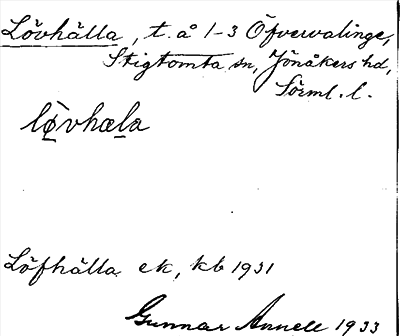 Lövhälla, t. å 1-3 Öfvervalinge,
Stigtomta sn, Jönåkers hd,
Sörml. l.
lö̀vhæla
Löfhälla ek, kb 1931
Gunnar Annell 1933